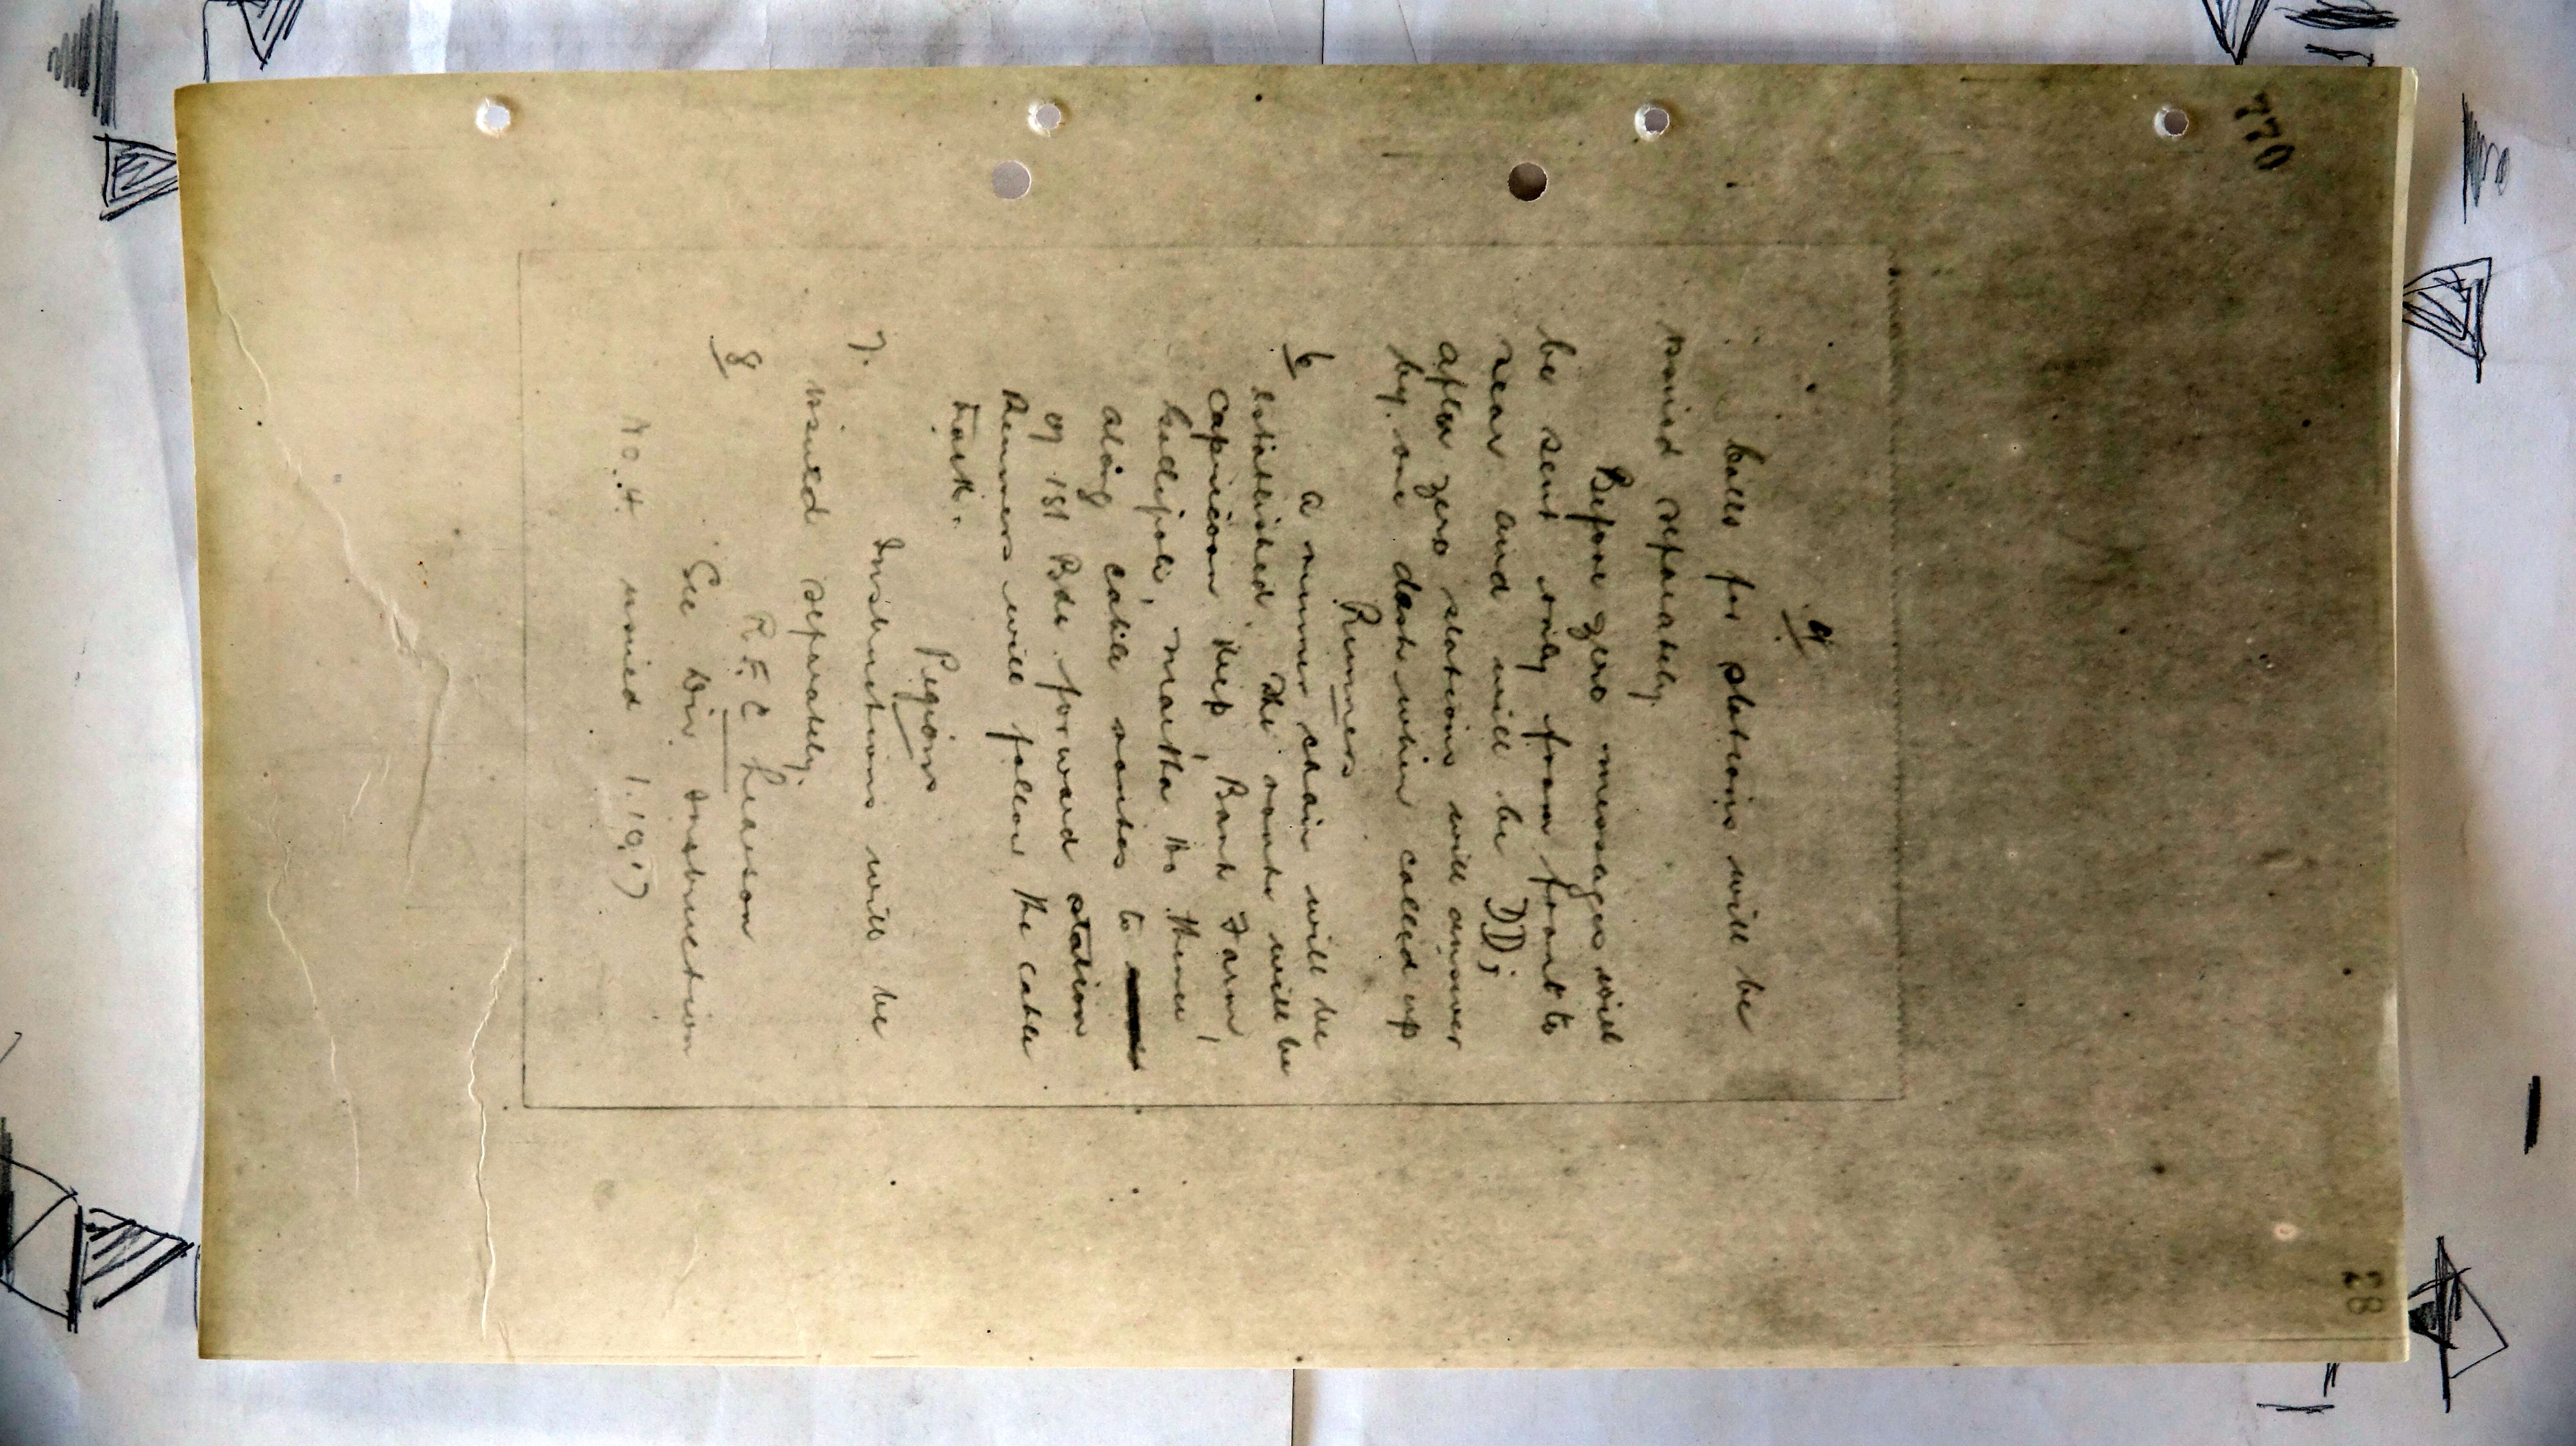 770
28
4
Calls for stations will be
issued separately.
Before zero messages will
be sent only from front to
rear and will be DD;
after zero stations will answer
by one dash when called up
Runners
6 A runner chain will be
established. The route will be
Capricorn Keep, Bank Farm,
Gallipoli, Martha Ho thence
along cable routes to
of 1st Bde forward station
Runners will follow the cable
track.
Pegions
7. Instructions will be
issued separately.
R.F.C Liaison
8 See Div Instruction
No. 4 issued 1.10.17